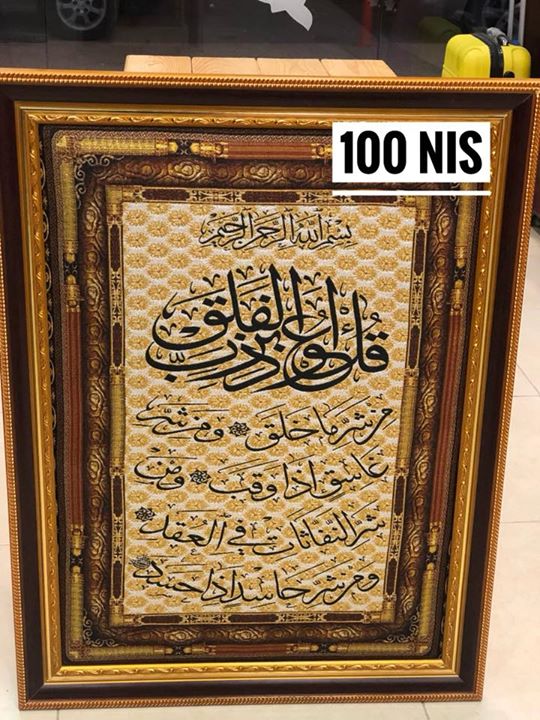 100 NIS
بسم الله الرحمن الرحيم
قل أعوذ برب الفلق
من شر ما خلق ومن شر
غاسق اذا وقب ومن
شر النفاثات في العقد
ومن شر حاسد اذا حسد